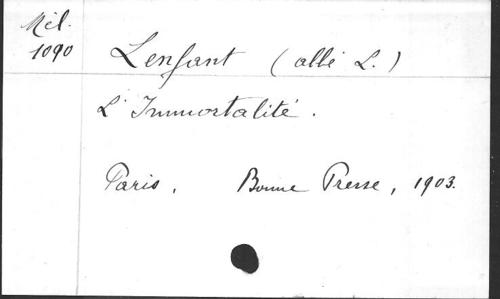 Mél.
1090
Lenfant (abbé L.)
L'Immortalité.
Paris, Bonne Presse, 1903.